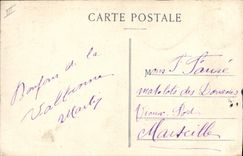 CARTE POSTALE
Bonjour de la
Valbonne
Mons F. Fauré
matelots des Douanes
Vieux-Port
Marseille